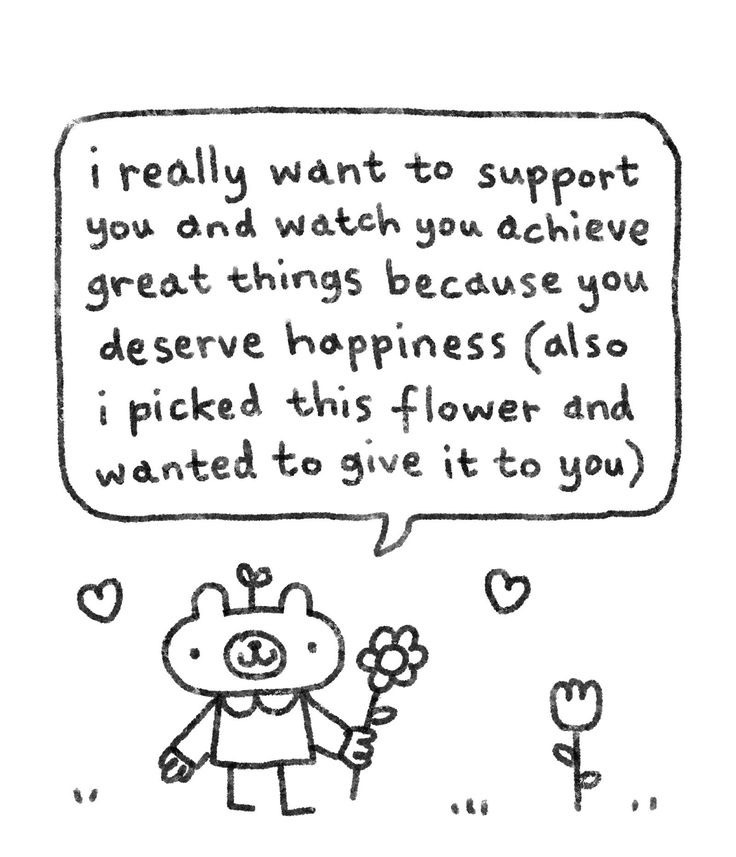 i really want to support
you and watch you achieve
great things because you
deserve happiness (also
i picked this flower and
wanted to give it to you)